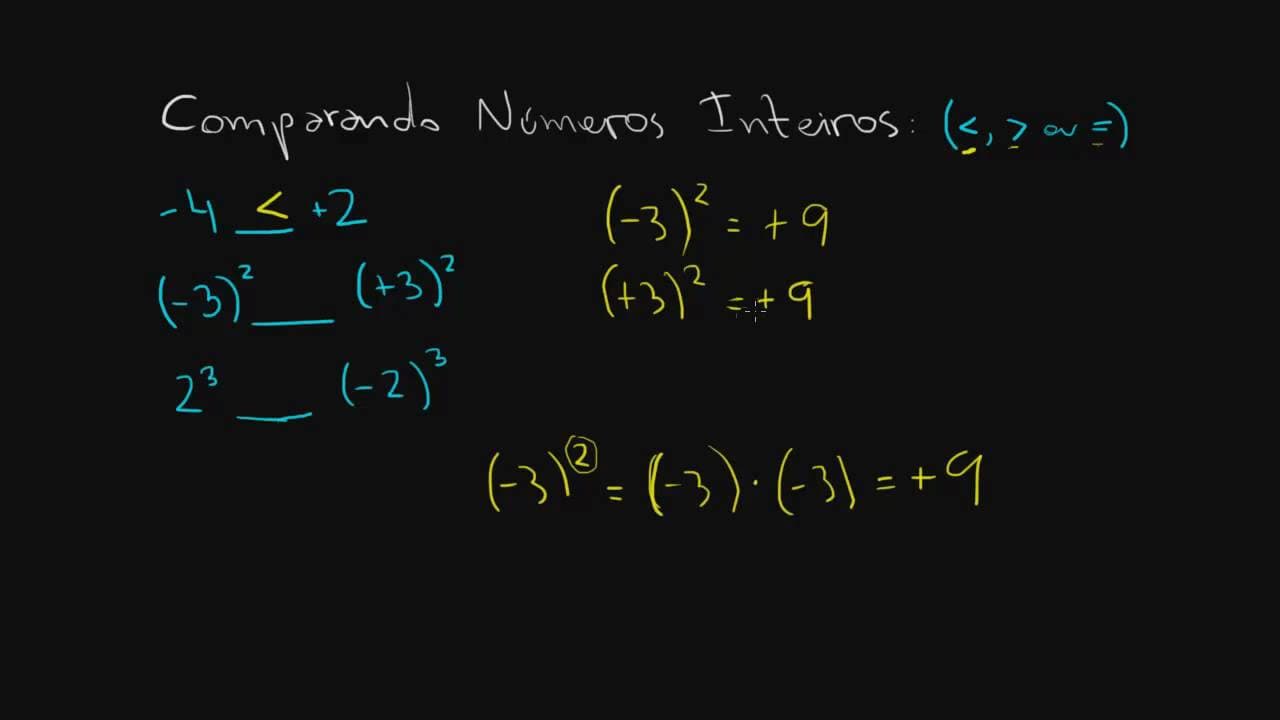 Comparando Números Inteiros: (<, > ou =)
-4 < +2
(-3)² ___ (+3)²
2³ ___ (-2)³
(-3)² = +9
(+3)² = +9
(-3)² = (-3) · (-3) = +9